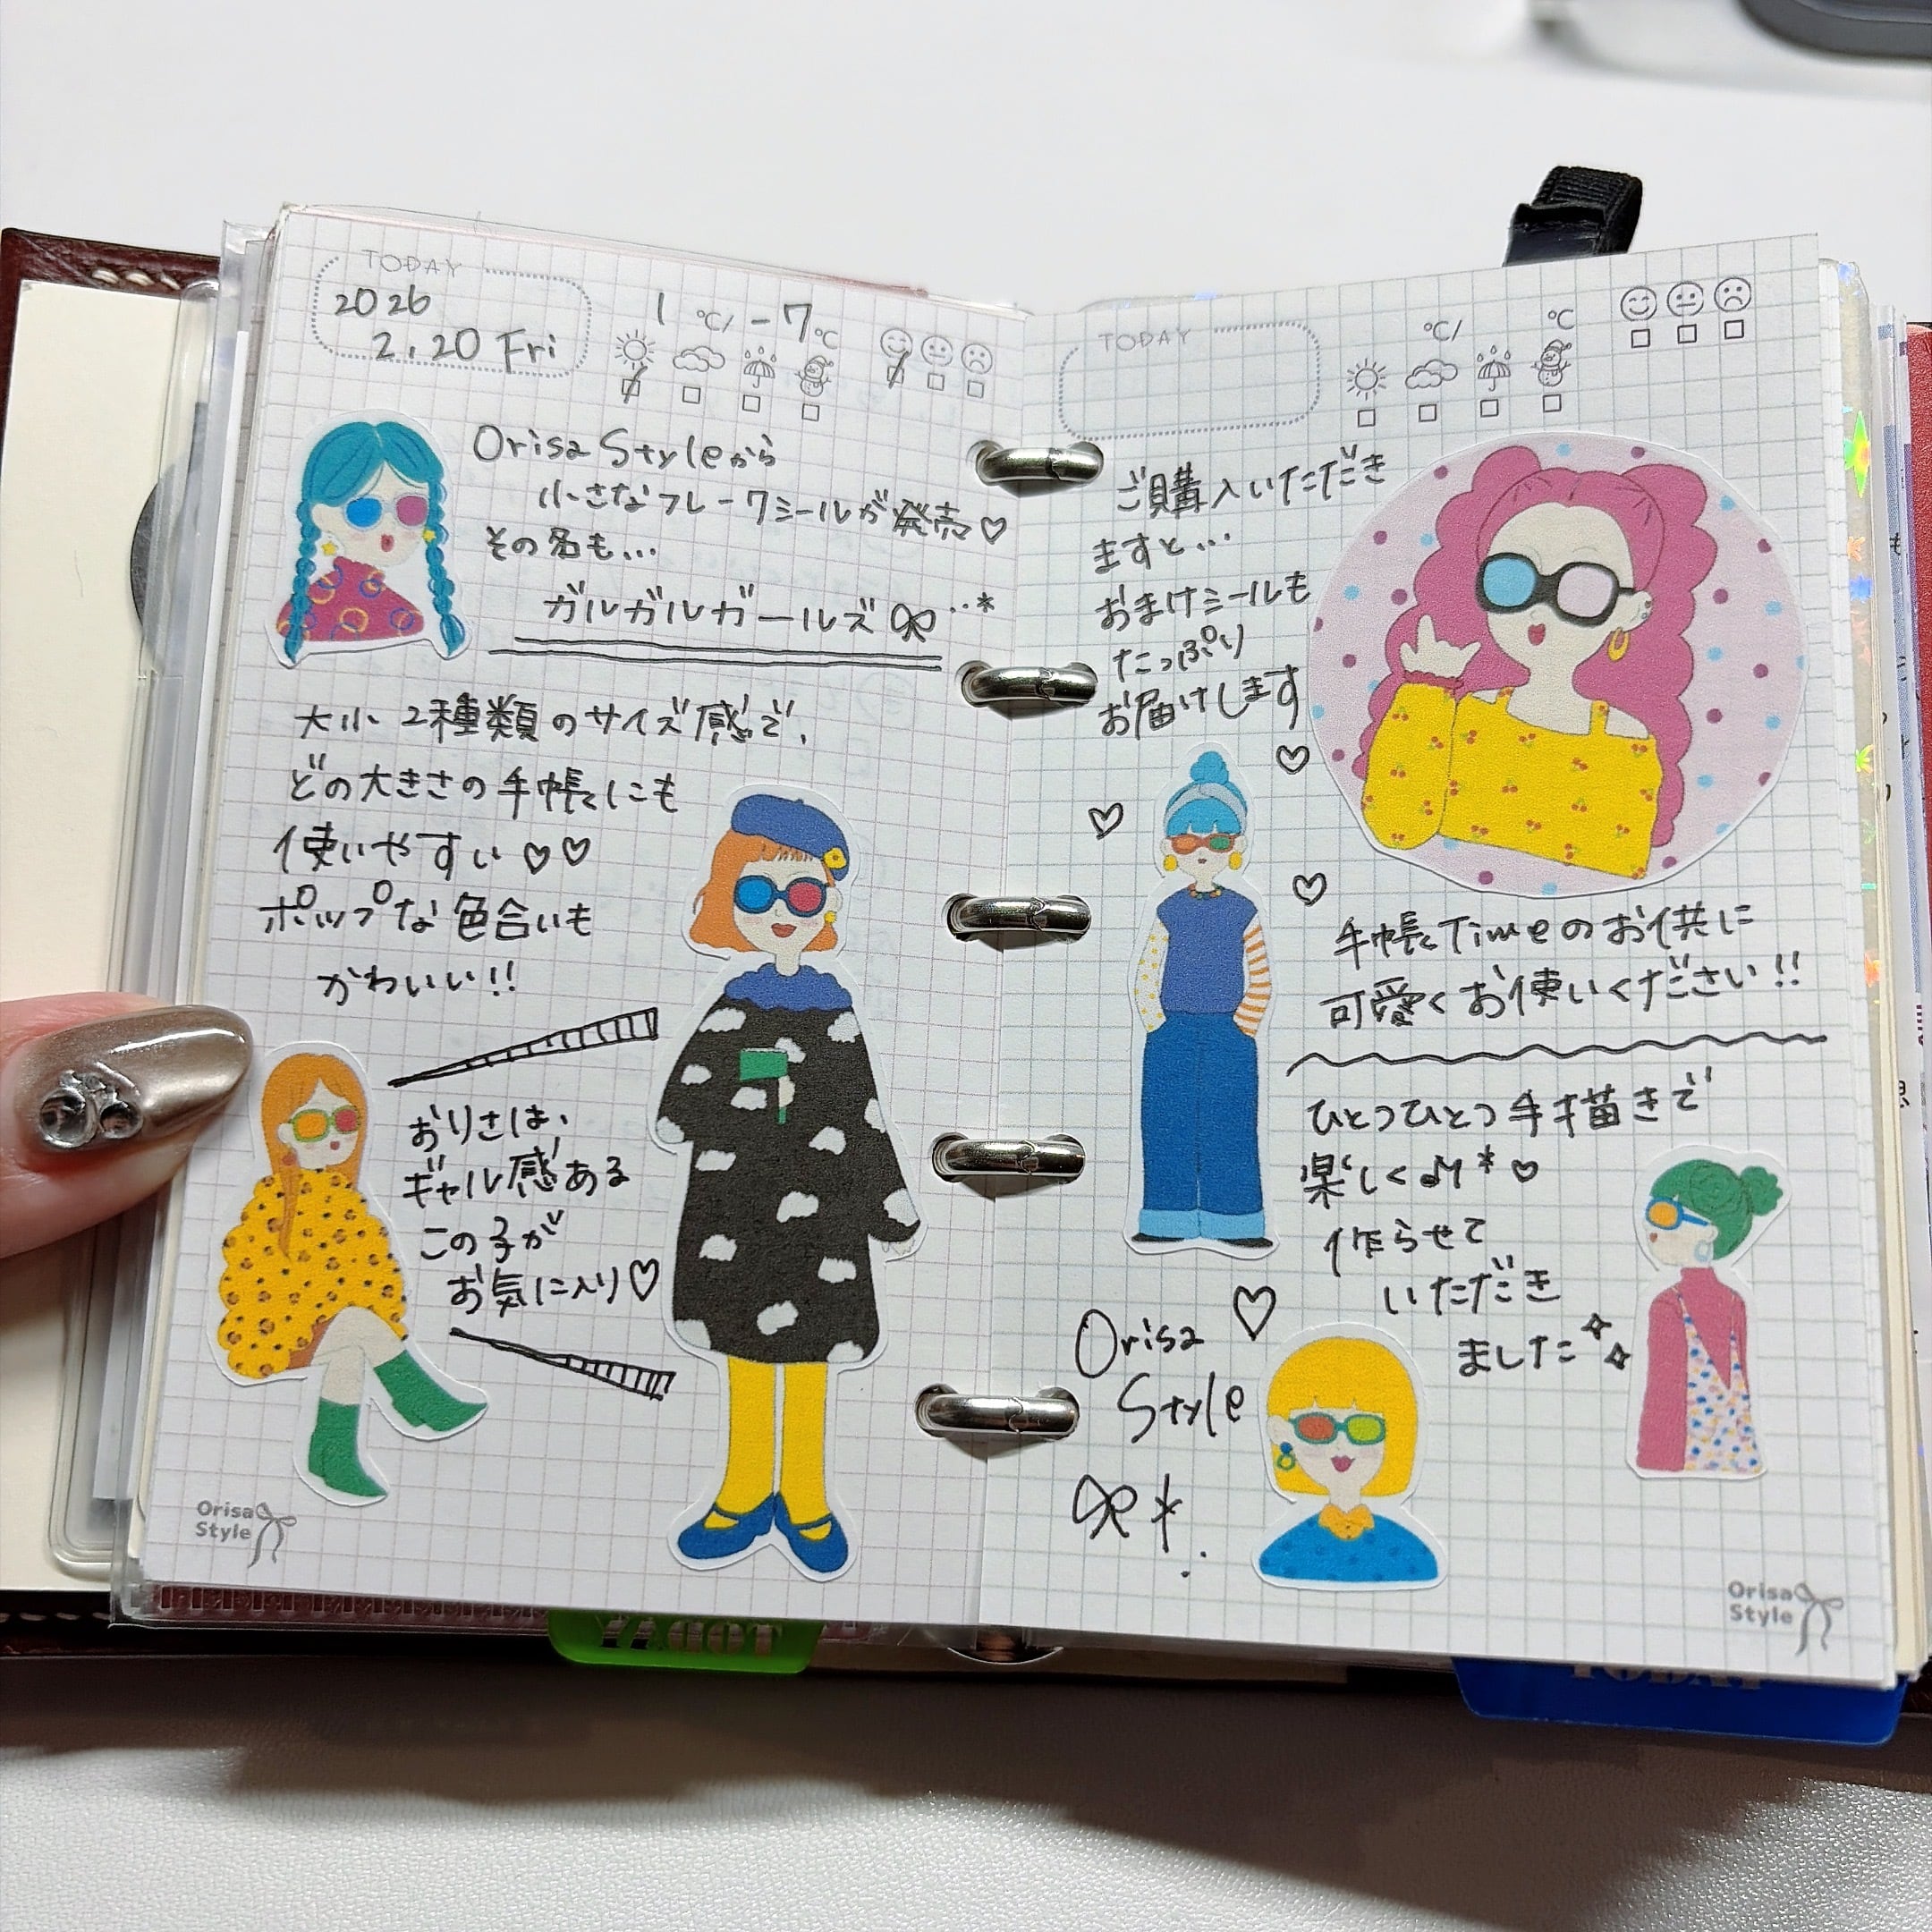 TODAY
2026
2.20 Fri
1 ℃/ -7℃
Orisa Styleから
小さなフレークシールが発売♡
その名も...
ガルガルガールズ
大小2種類のサイズ感で、
どの大きさの手帳にも
使いやすい♡♡
ポップな色合いも
かわいい!!
おりさは、
ギャル感ある
この子が
お気に入り♡
Orisa
Style
TODAY
℃/ ℃
ご購入いただき
ますと...
おまけシールも
たっぷり
お届けします
♡
手帳Timeのお供に
可愛くお使いください!!
ひとつひとつ手描きで
楽しく♪*♡
作らせて
いただき
ました
Orisa
Style
Orisa
Style
TODAY
TODAY